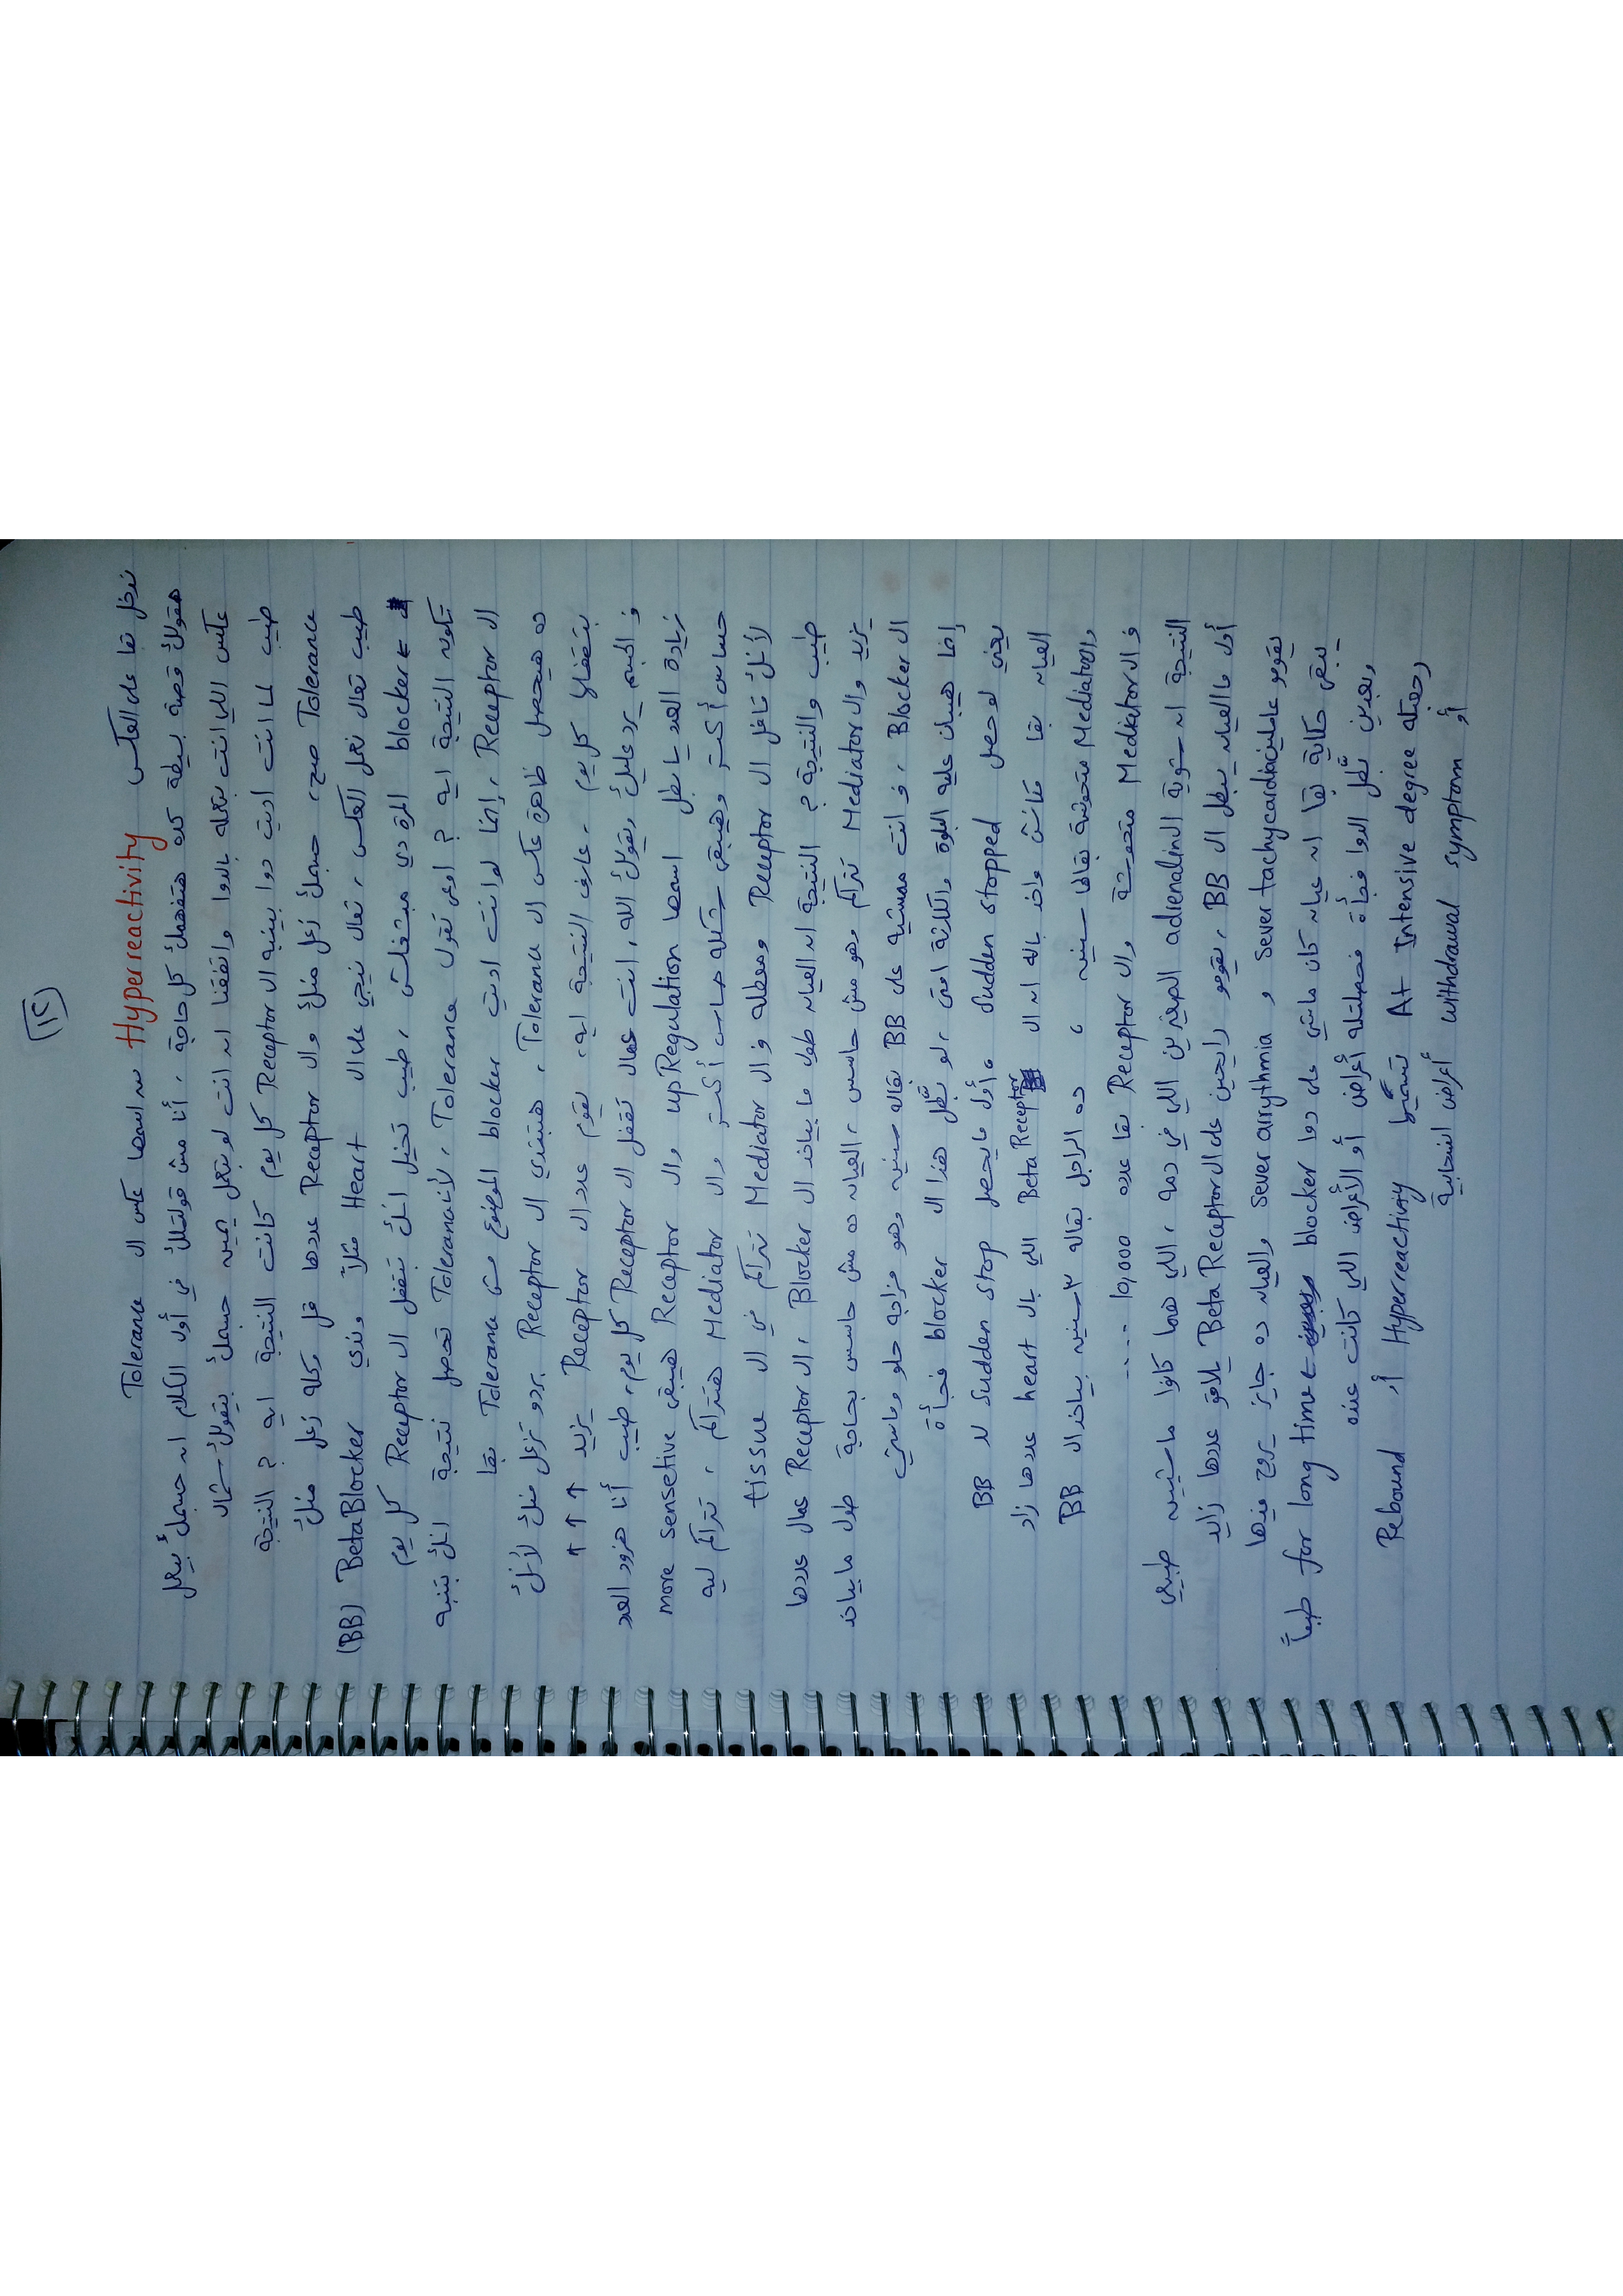 ١٢
ندخل بقا على العكس Hyperreactivity اسمها عكس ال Tolerance
هقولك قصة بسيطة كده هتفهمك كل حاجة ، أنا مش قولتلك في أول الكلام ان جسمك بيعمل
عكس اللي انت بتعمله بالدوا واتفقنا ان انت لو بتعمل يمين جسمك بيقولك شمال
طيب لما انت اديت دوا بينبه ال Receptor كل يوم كانت النتيجة ايه ؟ النتيجة
Tolerance صح، جسمك زعل منك وال Receptor عددها قل وكله زعل منك
طيب تعال نعمل العكس ، تعال نيجي على ال Heart مثلاً وندي BetaBlocker (BB)
← blocker المرة دي مبتشغلش ، طيب تخيل انك بتقفل ال Receptor كل يوم
تكون النتيجة ايه ؟ اوعى تقول Tolerance ، لأن Tolerance تحصل نتيجة انك بتنبه
ال Receptor ، إنما لو انت اديت blocker الموضوع مش Tolerance بقا
ده هيحصل ظاهرة عكس ال Tolerance ، هيبتدي ال Receptor بردو تزعل منك لأنك
بتقفلها كل يوم ، عارف النتيجة ايه، يقوم عدد ال Receptor يزيد ↑ ↑ ↑
و الجسم يرد عليك ويقولك الله ، انت عمال تقفل ال Receptor كل يوم، طيب أنا هزود العدد
زيادة العدد يا بطل اسمها upRegulation وال Receptor هيبقى more sensetive
حساس أكتر وهيبقى شكله حساس أكتر وال Mediator هتتراكم ، تتراكم ليه
لأنك قافل ال Receptor ومعطله وال Mediator تتراكم في ال tissue
طيب والنتيجة ؟ النتيجة ان العيان طول ما بياخد ال Blocker ، ال Receptor عمال عددها
يزيد وال Mediator تتراكم وهو مش حاسس ، العيان ده مش حاسس بحاجة طول ما بياخد
ال Blocker ، وانت ممشيه على BB بقاله سنين وهو مزاجه حلو وماشي
إنما هيبان عليه البلوة والكارثة امتى ، لو بطل هذا ال blocker فجأة
يعني لو حصل Sudden stopped ، أول مايحصل Sudden stop لل BB
العيان بقا مكانش واخد باله ان ال Beta Receptor اللي بال heart عددها زاد
وال Mediator متحوشة بقالها سنين ، ده الراجل بقاله ٣ سنين بياخد ال BB
و ال Mediator متحوشة وال Receptor بقا عدده 10,000 ....
النتيجة ان شوية ال adrenaline الصغيرين اللي في دمه ، اللي هما كانوا ماشيين طبيعي
أول ما العيان يبطل ال BB ، يقومو رايحين على ال Beta Receptor يلاقو عددها زايد
يقومو عاملين sever tachycardia و sever arrythmia والعيان ده جايز يروح فيها
يبقى حكاية بقا ان عيان كان ماشي على دوا blocker ← for long time طبعاً
وبعدين بطل الدوا فجأة فحصلتله أعراض أو الأعراض اللي كانت عنده
رجعتله At Intensive degree تسمى Hyperreactivity أو Rebound
أو withdrawal symptom أعراض انسحابية